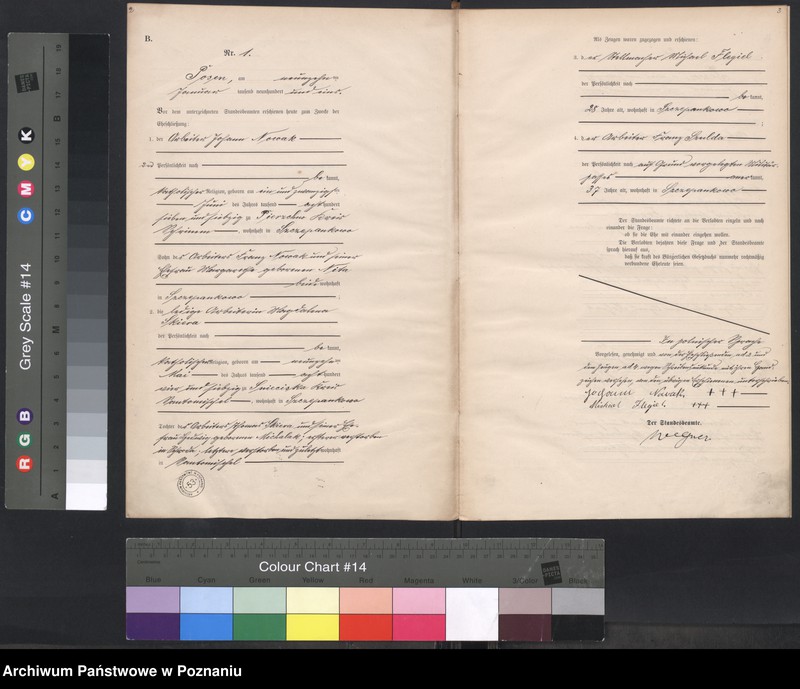 B.
Nr. 1.
Posen, am neunzehn
Januar tausend neunhundert und eins.
Vor dem unterzeichneten Standesbeamten erschienen heute zum Zwecke der
Eheschließung:
1. der Arbeiter Johann Nowak
der Persönlichkeit nach
be kannt,
katholischer Religion, geboren am ein und zwanzig
Juni des Jahres tausend acht hundert
sieben und siebzig zu Kreis
Schrimm, wohnhaft in Szczepankowo
Sohn des Arbeiters Franz Nowak und seiner
Ehefrau Margarethe geborenen
beide wohnhaft
in Szczepankowo;
2. die ledige Arbeiterin Magdalena
Skiera
der Persönlichkeit nach
be kannt,
katholischer Religion, geboren am neunzehn
Mai des Jahres tausend acht hundert
vier und siebzig zu Kreis
Santomischel, wohnhaft in Szczepankowo
Tochter des Arbeiters Thomas Skiera und seiner Ehe-
frau Hedwig geborene Michalak; ersterer verstorben
in Schroda, letztere verstorben und zuletzt wohnhaft
in Santomischel
53
3
Als Zeugen waren zugezogen und erschienen:
3. der Stellmacher Michael Flegiel
der Persönlichkeit nach
be kannt,
28 Jahre alt, wohnhaft in Szczepankowo;
4. der Arbeiter Franz Szulda
der Persönlichkeit nach auf Grund vorgelegten Militär-
passes aner kannt,
37 Jahre alt, wohnhaft in Szczepankowo
Der Standesbeamte richtete an die Verlobten einzeln und nach
einander die Frage:
ob sie die Ehe mit einander eingehen wollen.
Die Verlobten bejahten diese Frage und der Standesbeamte
sprach hierauf aus,
daß sie kraft des Bürgerlichen Gesetzbuchs nunmehr rechtmäßig
verbundene Eheleute seien.
In polnischer Sprache
Vorgelesen, genehmigt und von der Eheschließenden ad 2 und
dem Zeugen ad 4 wegen Schreibensunkunde mit ihrem Hand-
zeichen versehen, von den übrigen Erschienenen unterschrieben
Johann Nowak +++
Michael Flegiel +++
Der Standesbeamte.
Grey Scale #14
R G B
C M Y K
A
M
B
Colour Chart #14
Blue
Cyan
Green
Yellow
Red
Magenta
White
3/Color
Black
DANES
PICTA
Archiwum Państwowe w Poznaniu